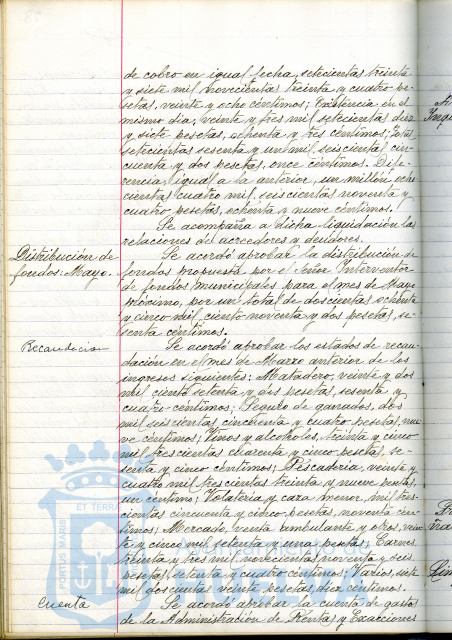 de cobro en igual fecha, setecientas treinta
y siete mil novecientas treinta y cuatro pe-
setas, veinte y ocho céntimos; Existencia en el
mismo dia, veinte y tres mil setecientas diez
y siete pesetas, ochenta y tres céntimos; Total
setecientas sesenta y un mil seiscientas cin-
cuenta y dos pesetas, once céntimos. Dife-
rencia, igual a la anterior, un millón ocho
cientas cuatro mil, seiscientas noventa y
cuatro pesetas, ochenta y nueve céntimos.
Se acompaña a dicha liquidación las
relaciones de acreedores y deudores.
Distribución de
fondos: Mayo.
Se acordó aprobar la distribución de
fondos propuesta por el Señor Interventor
de fondos municipales para el mes de Mayo
próximo, por un total de doscientas ochenta
y cinco mil ciento noventa y dos pesetas, se-
senta céntimos.
Recaudacion
Se acordó aprobar los estados de recau-
dación en el mes de Marzo anterior de los
ingresos siguientes: Matadero, veinte y dos
mil ciento setenta y dos pesetas, sesenta y
cuatro céntimos; Seguro de ganados, dos
mil seiscientas cincuenta y cuatro pesetas, nue-
ve céntimos; Vinos y alcoholes, treinta y cinco
mil trescientas cuarenta y cinco pesetas, se-
senta y cinco céntimos; Pescaderia, veinte y
cuatro mil trescientas treinta y nueve pesetas,
un céntimo; Volateria y caza menor, mil tres-
cientas cincuenta y cinco pesetas, noventa cén-
timos; Mercado, venta ambulante y otros, vein-
te y cinco mil setenta y una pesetas; Carnes
treinta y tres mil novecientas noventa y seis
pesetas, setenta y cuatro céntimos; Varios, siete
mil doscientas veinte pesetas, diez céntimos.
Cuenta
Se acordó aprobar la cuenta de gastos
de la Administración de Rentas y Exacciones
ET TERRA
PORTUS MARIS
Ayuntamiento de